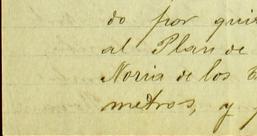 do por
al Plan de
Noria de los
metros, y